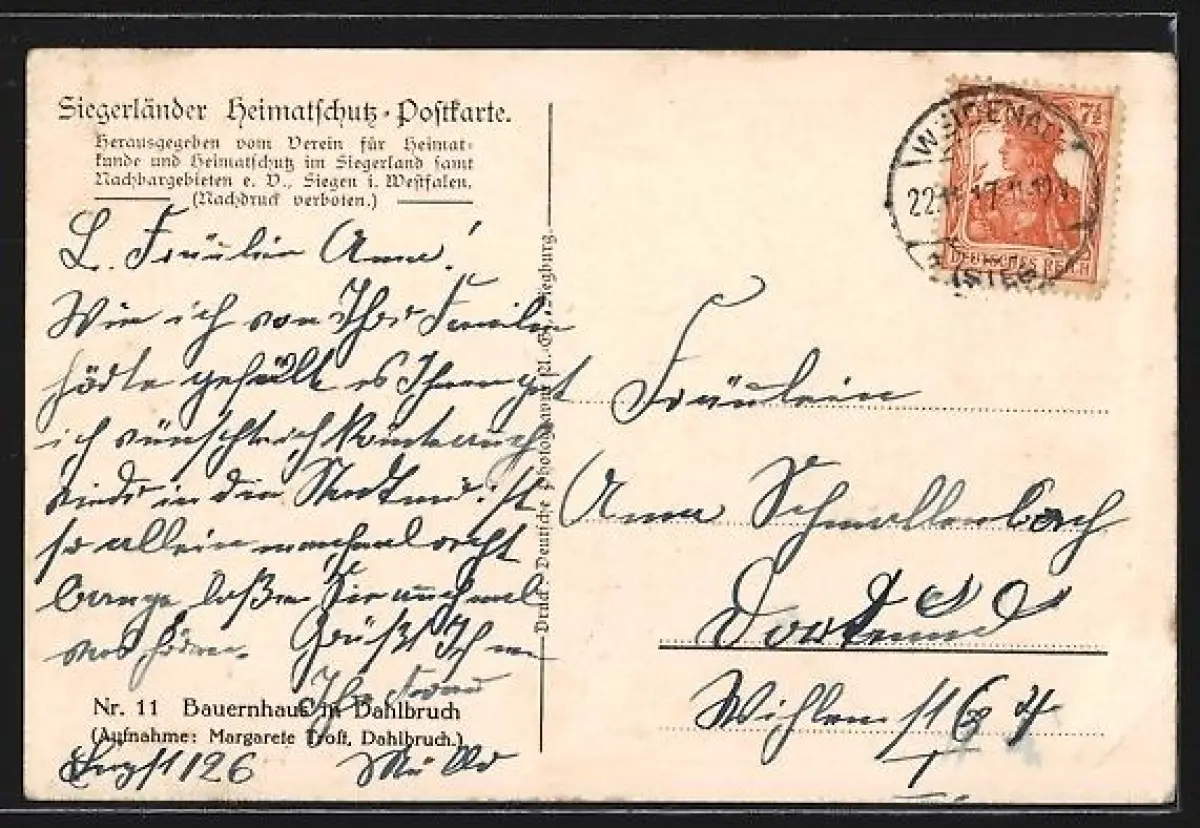 Siegerländer Heimatschutz-Postkarte.
Herausgegeben vom Verein für Heimat-
kunde und Heimatschutz im Siegerland samt
Nachbargebieten e. V., Siegen i. Westfalen.
(Nachdruck verboten.)
L. Fräulein Anna!
Wie ich von Ihrer Familie
hörte gefällt es Ihnen gut
ich wünschte ich könnte auch
in der Stadt ist
so allein manchmal recht
bange laßen Sie auch mal
was hören. Grüßt
Ihre Frau
Müller
Nr. 11 Bauernhaus in Dahlbruch
(Aufnahme: Margarete Trost, Dahlbruch.)
126
Druck: Deutsche Photogravur A.-G., Siegburg.
WEIDENAU
22.11.17
(SIEG)
7½
DEUTSCHES REICH
Fräulein
Anna Schmallenbach
Dortmund
164